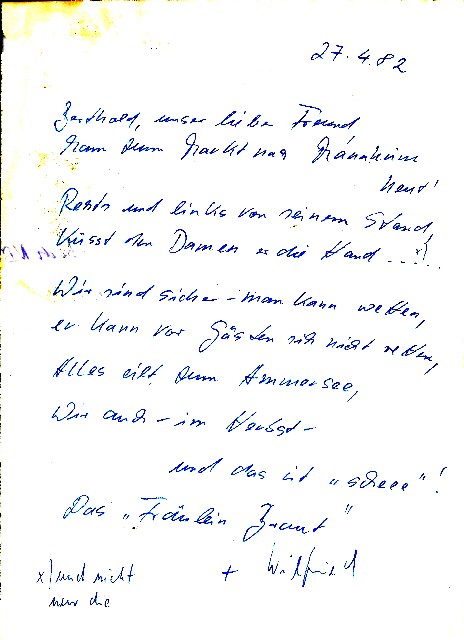 27.4.82
Berthold, unser lieber Freund
kam zum Markt nach Mannheim
heut!
Rechts und links von seinem Stand,
küsst den Damen er die Hand ... x)
Wir sind sicher - man kann wetten,
er kann vor Gästen sich nicht retten,
Alles eilt zum Ammersee,
Wir auch - im Herbst -
und das ist „scheee"!
Das „Fräulein Braut"
+ Wilfried
x) und nicht
nur die